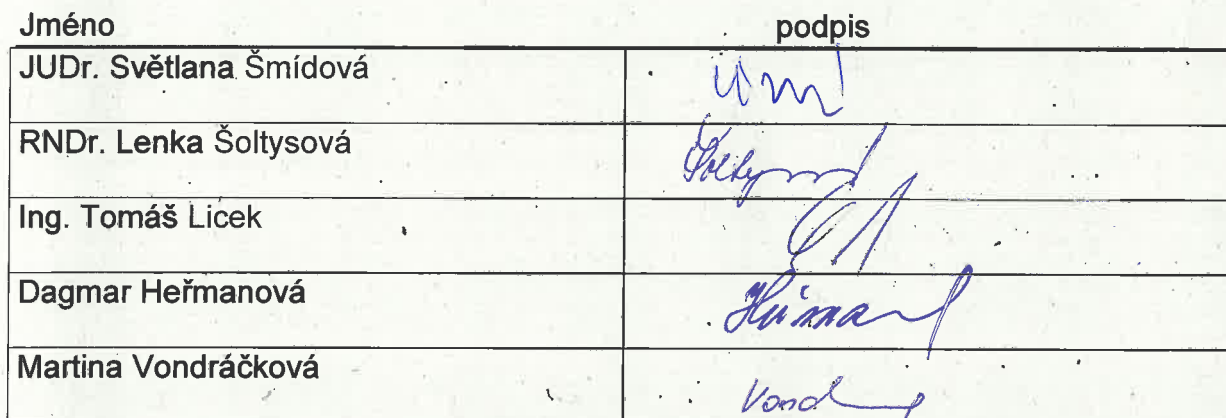 Jméno podpis
JUDr. Světlana Šmídová
RNDr. Lenka Šoltysová
Ing. Tomáš Licek
Dagmar Heřmanová
Martina Vondráčková